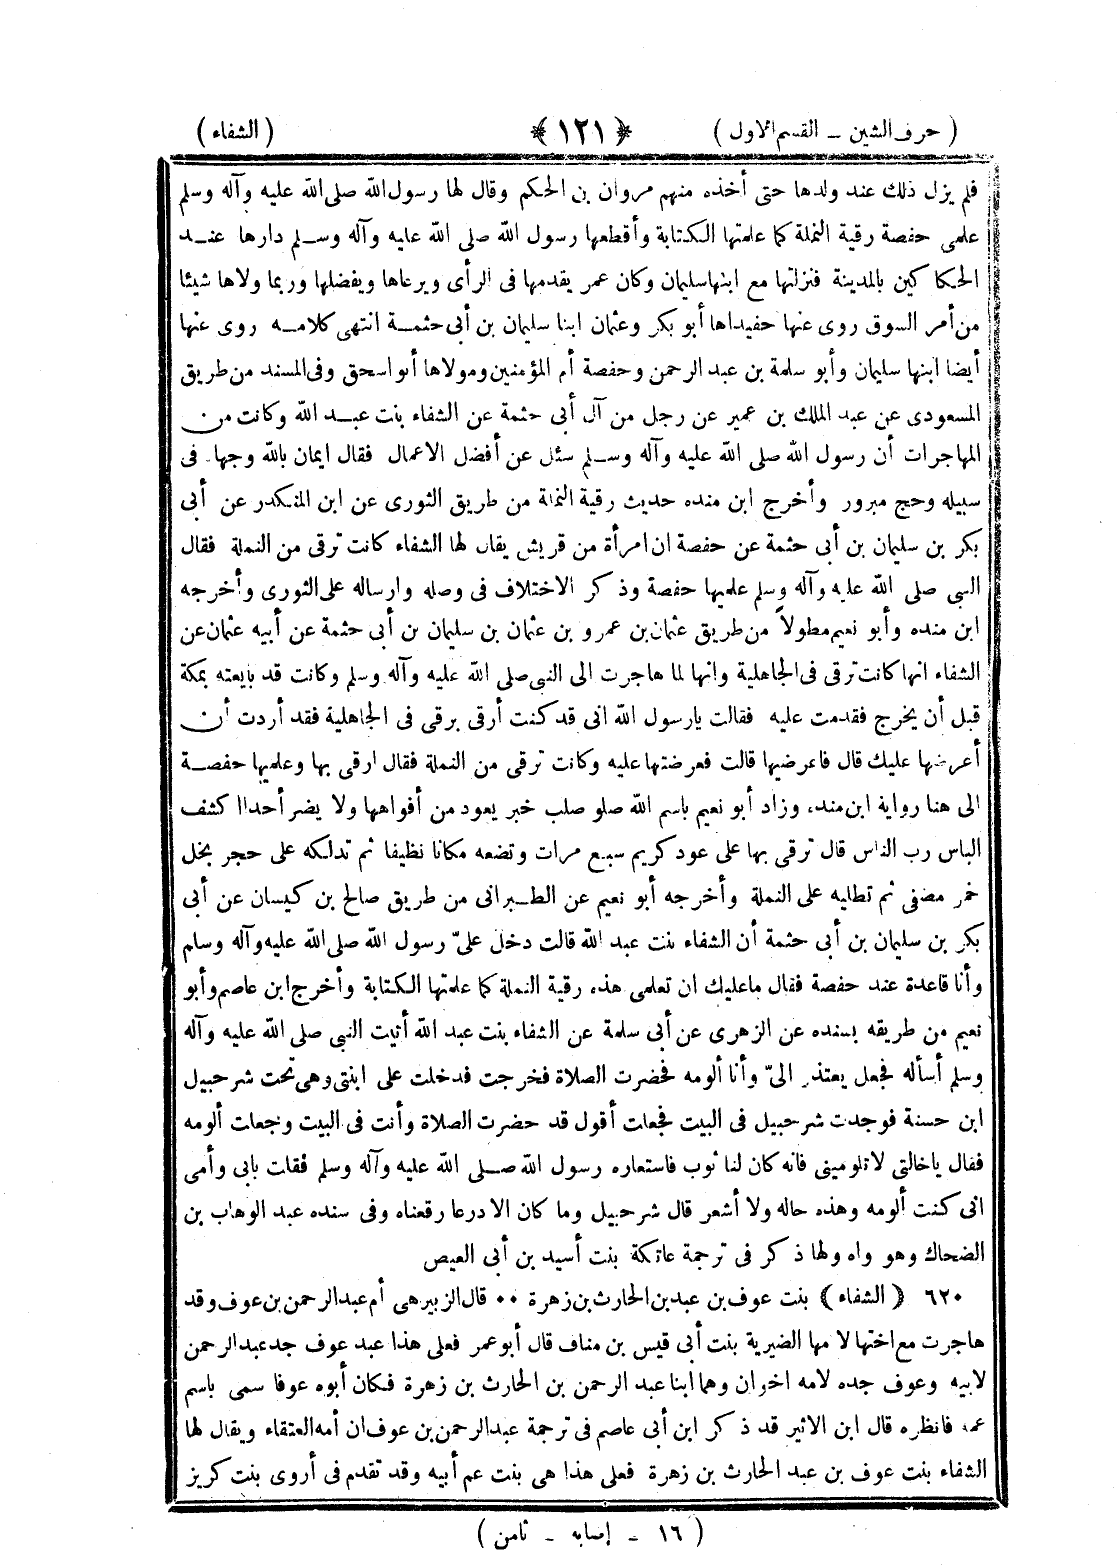 ( حرف الشين - القسم الاول ) ﴿ ١٢١ ﴾ ( الشفاء )
فلم يزل ذلك عند ولدها حتى أخذه منهم مروان بن الحكم وقال لها رسول الله صلى الله عليه وآله وسلم
علمى حفصة رقية النملة كما علمتها الكتابة وأقطعها رسول الله صلى الله عليه وآله وسلم دارها عند
الحكاكين بالمدينة فنزلتها مع ابنها سليمان وكان عمر يقدمها فى الرأى ويرعاها ويفضلها وربما ولاها شيئا
من أمر السوق روى عنها حفيداها أبو بكر وعثمان ابنا سليمان بن أبى حثمة انتهى كلامه روى عنها
أيضا ابنها سليمان وأبو سلمة بن عبد الرحمن وحفصة أم المؤمنين ومولاها أبو اسحق وفى المسند من طريق
المسعودى عن عبد الملك بن عمير عن رجل من آل أبى حثمة عن الشفاء بنت عبد الله وكانت من
المهاجرات أن رسول الله صلى الله عليه وآله وسلم سئل عن أفضل الاعمال فقال ايمان بالله وجهاد فى
سبيله وحج مبرور وأخرج ابن منده حديث رقية النملة من طريق الثورى عن ابن المنكدر عن أبى
بكر بن سليمان بن أبى حثمة عن حفصة ان امرأة من قريش يقال لها الشفاء كانت ترقى من النملة فقال
النبى صلى الله عليه وآله وسلم علميها حفصة وذكر الاختلاف فى وصله وارساله على الثورى وأخرجه
ابن منده وأبو نعيم مطولاً من طريق عثمان بن عمرو بن عثمان بن سليمان بن أبى حثمة عن أبيه عثمان عن
الشفاء انها كانت ترقى فى الجاهلية وانها لما هاجرت الى النبى صلى الله عليه وآله وسلم وكانت قد بايعته بمكة
قبل أن يخرج فقدمت عليه فقالت يارسول الله انى قد كنت أرقى برقى فى الجاهلية فقد أردت أن
أعرضها عليك قال فاعرضيها قالت فعرضتها عليه وكانت ترقى من النملة فقال ارقى بها وعلميها حفصة
الى هنا رواية ابن منده وزاد أبو نعيم باسم الله صلو صلب خبر يعود من أفواهها ولا يضر أحدا اكشف
الباس رب الناس قال ترقى بها على عود كريم سبع مرات وتضعه مكانا نظيفا ثم تدلكه على حجر بخل
خمر مصفى ثم تطليه على النملة وأخرجه أبو نعيم عن الطبرانى من طريق صالح بن كيسان عن أبى
بكر بن سليمان بن أبى حثمة أن الشفاء بنت عبد الله قالت دخل علىّ رسول الله صلى الله عليه وآله وسلم
وأنا قاعدة عند حفصة فقال ماعليك ان تعلمى هذه رقية النملة كما علمتها الكتابة وأخرج ابن عاصم وأبو
نعيم من طريقه بسنده عن الزهرى عن أبى سلمة عن الشفاء بنت عبد الله أتيت النبى صلى الله عليه وآله
وسلم أسأله فجعل يعتذر الىّ وأنا ألومه فحضرت الصلاة فخرجت فدخلت على ابنتى وهى تحت شرحبيل
ابن حسنة فوجدت شرحبيل فى البيت فجعلت أقول قد حضرت الصلاة وأنت فى البيت وجعلت ألومه
فقال ياخالتى لاتلومينى فانه كان لنا ثوب فاستعاره رسول الله صلى الله عليه وآله وسلم فقلت بابى وأمى
انى كنت ألومه وهذه حاله ولا أشعر قال شرحبيل وما كان الا درعا رقعناه وفى سنده عبد الوهاب بن
الضحاك وهو واه ولها ذكر فى ترجمة عاتكة بنت أسيد بن أبى العيص
٦٢٠ ﴿ الشفاء ﴾ بنت عوف بن عبد بن الحارث بن زهرة ٠٠ قال الزبير هى أم عبد الرحمن بن عوف وقد
هاجرت مع اختها لامها الضيرية بنت أبى قيس بن مناف قال أبو عمر فعلى هذا عبد عوف جد عبد الرحمن
لابيه وعوف جده لامه اخوان وهما ابنا عبد الرحمن بن الحارث بن زهرة فكان أبوه عوفا سمى باسم
عمه فانظره قال ابن الاثير قد ذكر ابن أبى عاصم فى ترجمة عبد الرحمن بن عوف ان أمه العنقاء ويقال لها
الشفاء بنت عوف بن عبد الحارث بن زهرة فعلى هذا هى بنت عم أبيه وقد تقدم فى أروى بنت كريز
( ١٦ - إصابه - ثامن )